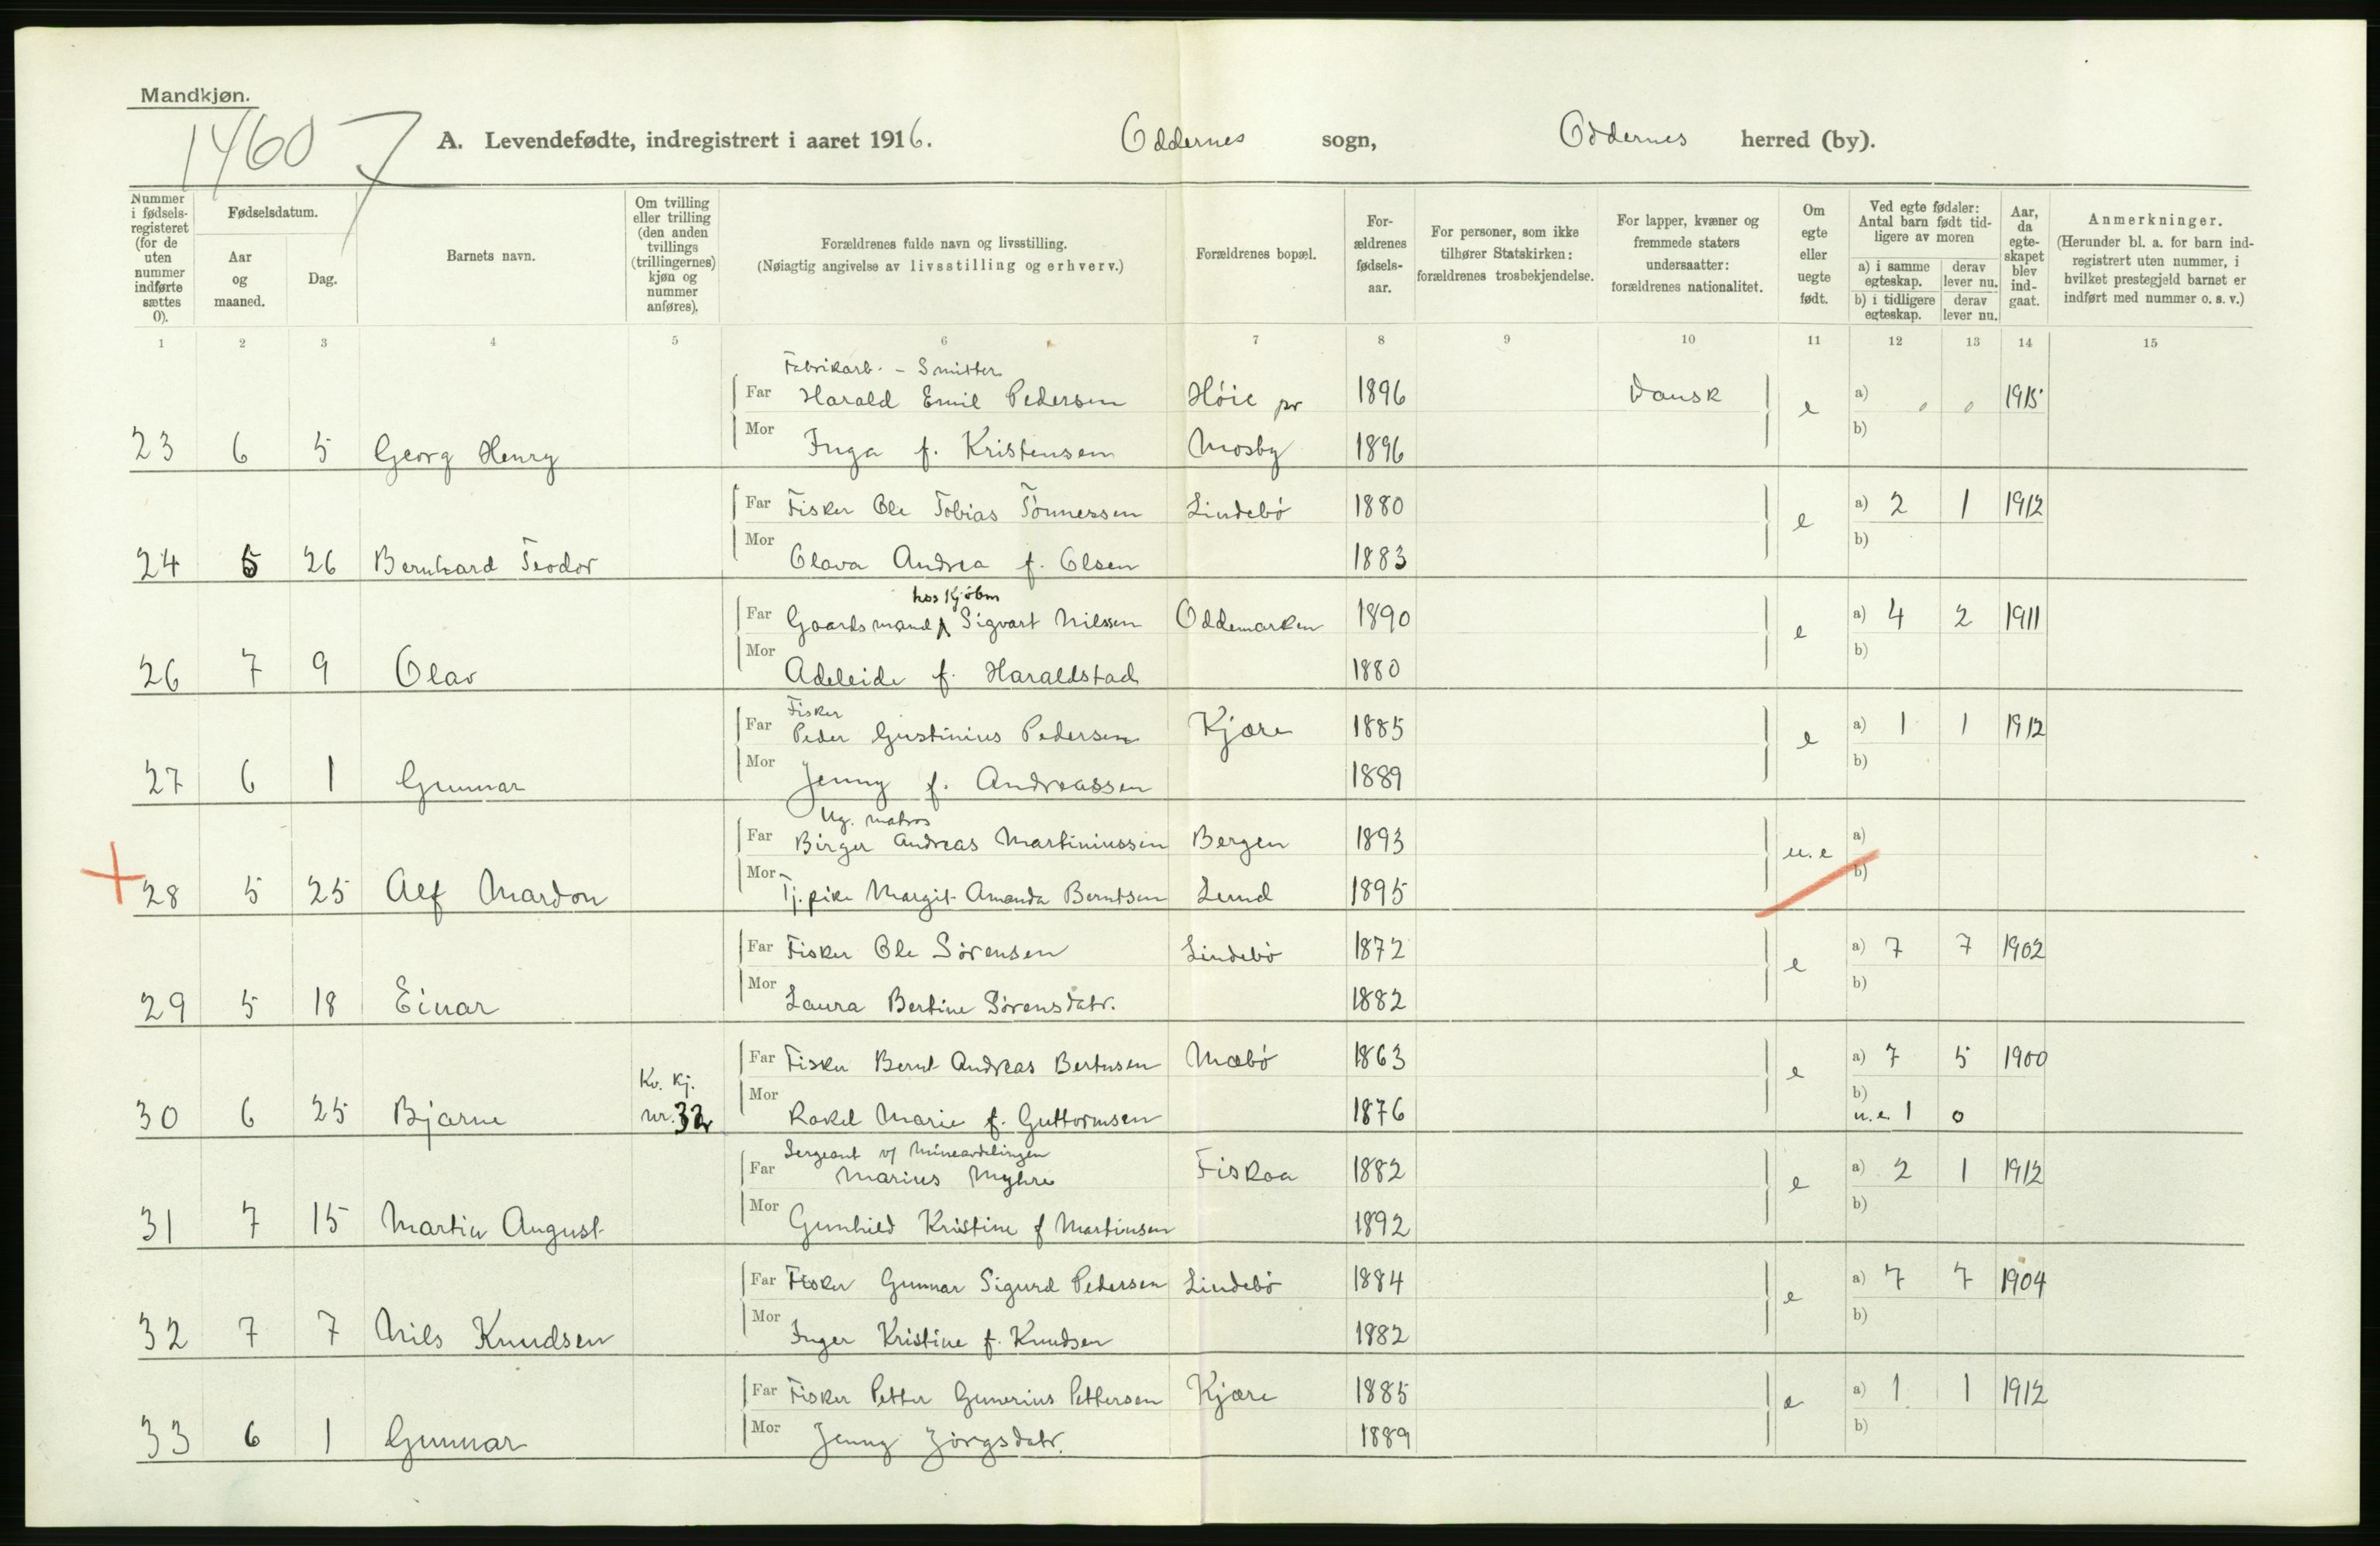 Mandkjøn.
1460 7
A. Levendefødte, indregistrert i aaret 1916. Oddernes sogn, Oddernes herred (by).
Nummer i fødsels-registeret (for de uten nummer indførte sættes 0).
Fødselsdatum.
Aar og maaned.
Dag.
Barnets navn.
Om tvilling eller trilling (den anden tvillings (trillingernes) kjøn og nummer anføres).
Forældrenes fulde navn og livsstilling.
(Nøiagtig angivelse av livsstilling og erhverv.)
Forældrenes bopæl.
For-ældrenes fødsels-aar.
For personer, som ikke tilhører Statskirken: forældrenes trosbekjendelse.
For lapper, kvæner og fremmede staters undersaatter: forældrenes nationalitet.
Om egte eller uegte født.
Ved egte fødsler: Antal barn født tid-ligere av moren
a) i samme egteskap. derav lever nu.
b) i tidligere egteskap. derav lever nu.
Aar, da egte-skapet blev ind-gaat.
Anmerkninger.
(Herunder bl. a. for barn ind-registrert uten nummer, i hvilket prestegjeld barnet er indført med nummer o. s. v.)
1 2 3 4 5 6 7 8 9 10 11 12 13 14 15
Fabrikarb. - Smitter
Far Harald Emil Pedersen Høie pr 1896 Dansk e a) 0 0 1915
23 6 5 Georg Henry Mor Inga f. Kristensen Mosby 1896 b)
Far Fisker Ole Tobias Tønnessen Lindebø 1880 e a) 2 1 1912
24 5 26 Bernhard Teodor Mor Olava Andrea f. Olsen 1883 b)
hos Kjøbm
Far Gaardsmand Sigvart Nilssen Oddemarken 1890 e a) 4 2 1911
26 7 9 Olav Mor Adeleide f. Haraldstad 1880 b)
Fisker
Far Peder Gustinius Pedersen Kjære 1885 e a) 1 1 1912
27 6 1 Gunnar Mor Jenny f. Andreassen 1889 b)
Ug. matros
Far Birger Andreas Martiniussen Bergen 1893 u.e a)
28 5 25 Alf Mardon Mor Tj. pike Margit Amanda Berntsen Lund 1895 b)
Far Fisker Ole Sørensen Lindebø 1872 e a) 7 7 1902
29 5 18 Einar Mor Laura Bertine Sørensdatr. 1882 b)
Far Fisker Bernt Andreas Bertnsen Mæbø 1863 e a) 7 5 1900
Kv. kj.
30 6 25 Bjarne nr. 32 Mor Rakel Marie f. Guttormsen 1876 b) u.e 1 0
Sergeant v/ Mineavdelingen
Far Marius Myhre Fiskaa 1882 e a) 2 1 1912
31 7 15 Martin August Mor Gunhild Kristine f Martinsen 1892 b)
Far Fisker Gunnar Sigurd Pedersen Lindebø 1884 e a) 7 7 1904
32 7 7 Nils Knudsen Mor Inger Kristine f. Knudsen 1882 b)
Far Fisker Petter Gunerius Pettersen Kjære 1885 e a) 1 1 1912
33 6 1 Gunnar Mor Jenny Jørgsdatr. 1889 b)